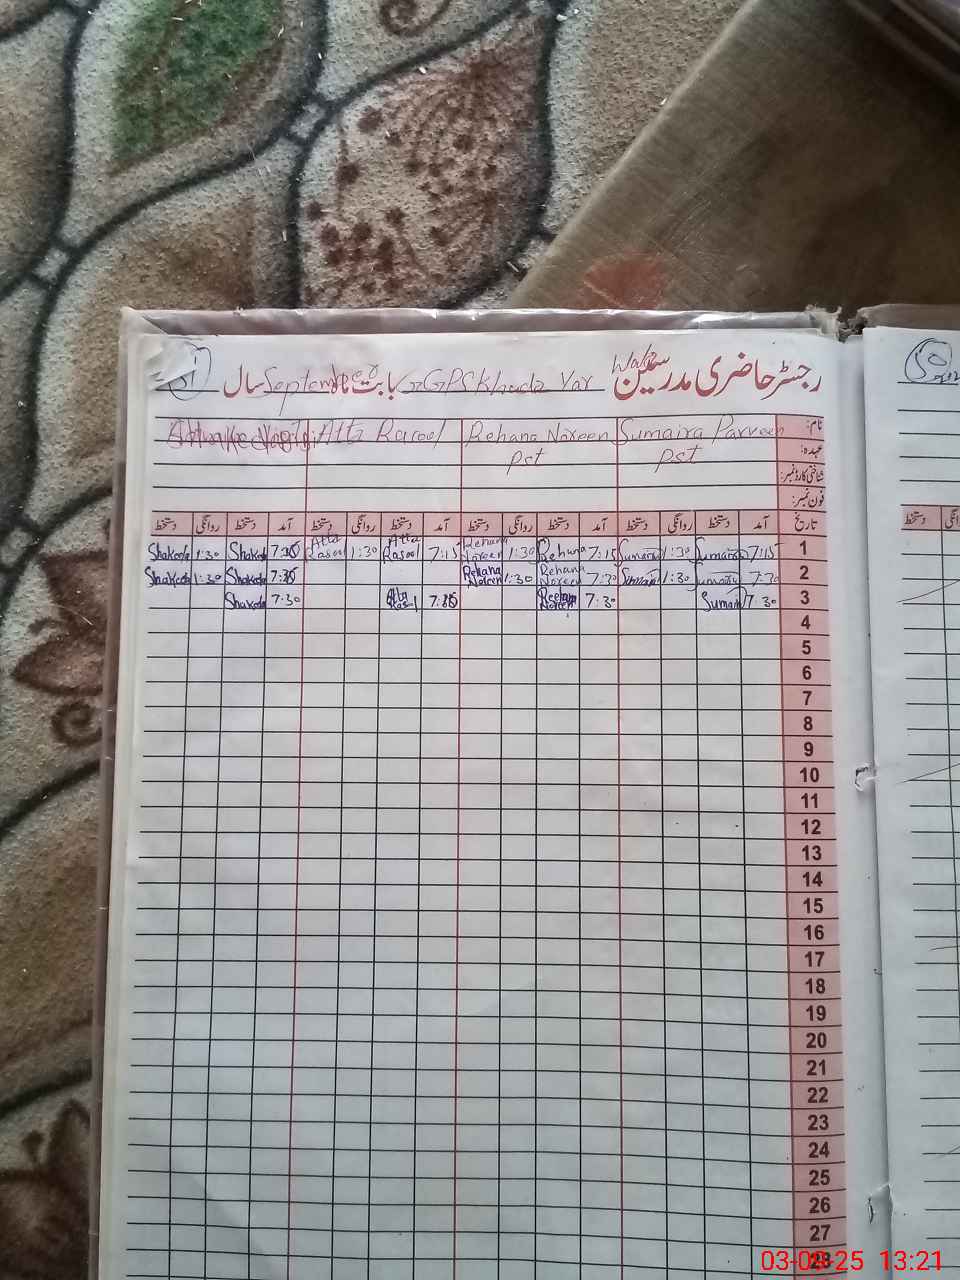 رجسٹر حاضری مدرسین GPS Khuda Yar Wala بابت ماہ September سال
51
نام: Sumaira Parveen Rehana Noreen Atta Rasool
عہدہ: Pst Pst
شناختی کارڈ نمبر:
فون نمبر:
تاریخ آمد دستخط روانگی دستخط آمد دستخط روانگی دستخط آمد دستخط روانگی دستخط آمد دستخط روانگی دستخط
1 7:15 Sumaira 1:30 Sumaira 7:15 Rehana 1:30 Rehana Noreen 7:15 Atta Rasool 1:30 Atta Rasool Shakeela 1:30 Shakeela
2 7:30 Sumaira 1:30 Sumaira 7:30 Rehana Noreen 1:30 Rehana Noreen Shakeela 1:30 Shakeela
3 7:30 Sumaira 7:30 Rehana Noreen Atta 7:30 Shakeela
4
5
6
7
8
9
10
11
12
13
14
15
16
17
18
19
20
21
22
23
24
25
26
27
28
03-09-25 13:21